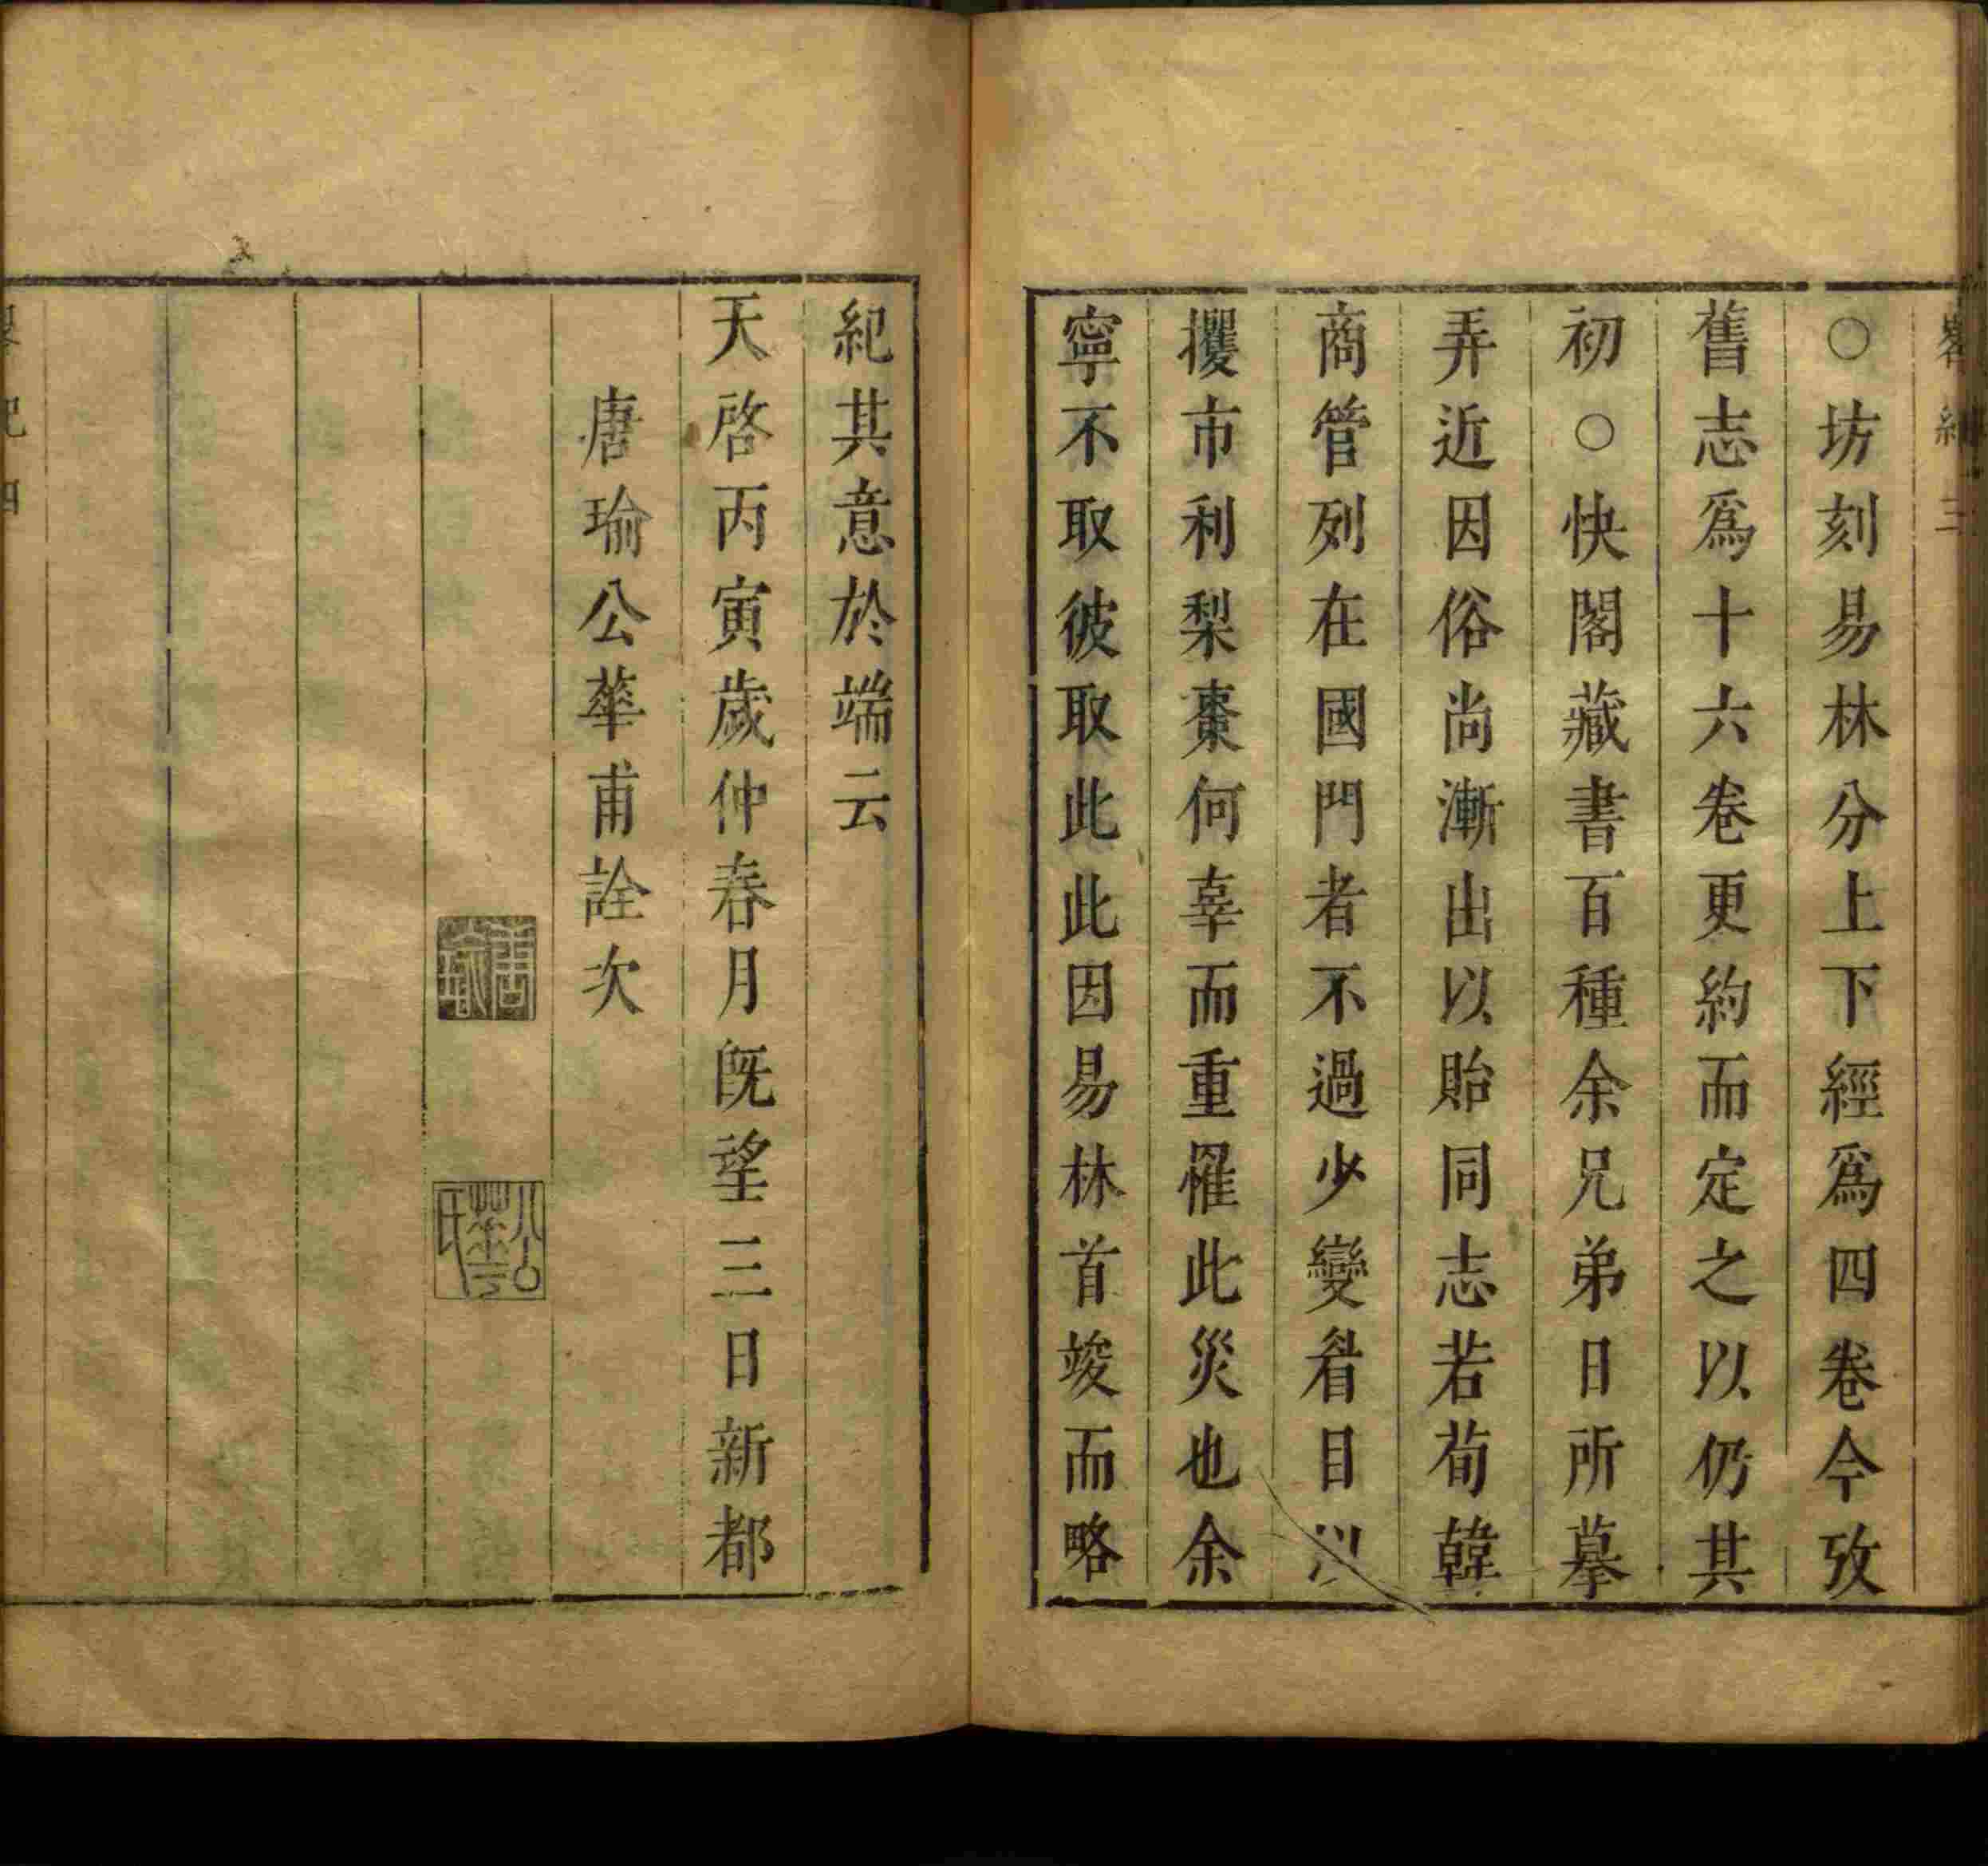 ○坊刻易林分上下經爲四卷今攷
舊志爲十六卷更約而定之以仍其
初○快閣藏書百種余兄弟日所摹
弄近因俗尚漸出以貽同志若荀韓
商管列在國門者不過少變眉目以
攫市利梨棗何辜而重罹此災也余
寧不取彼取此此因易林首竣而略
紀其意於端云
天啓丙寅歲仲春月旣望三日新都
唐瑜公華甫詮次
唐瑜
公華氏